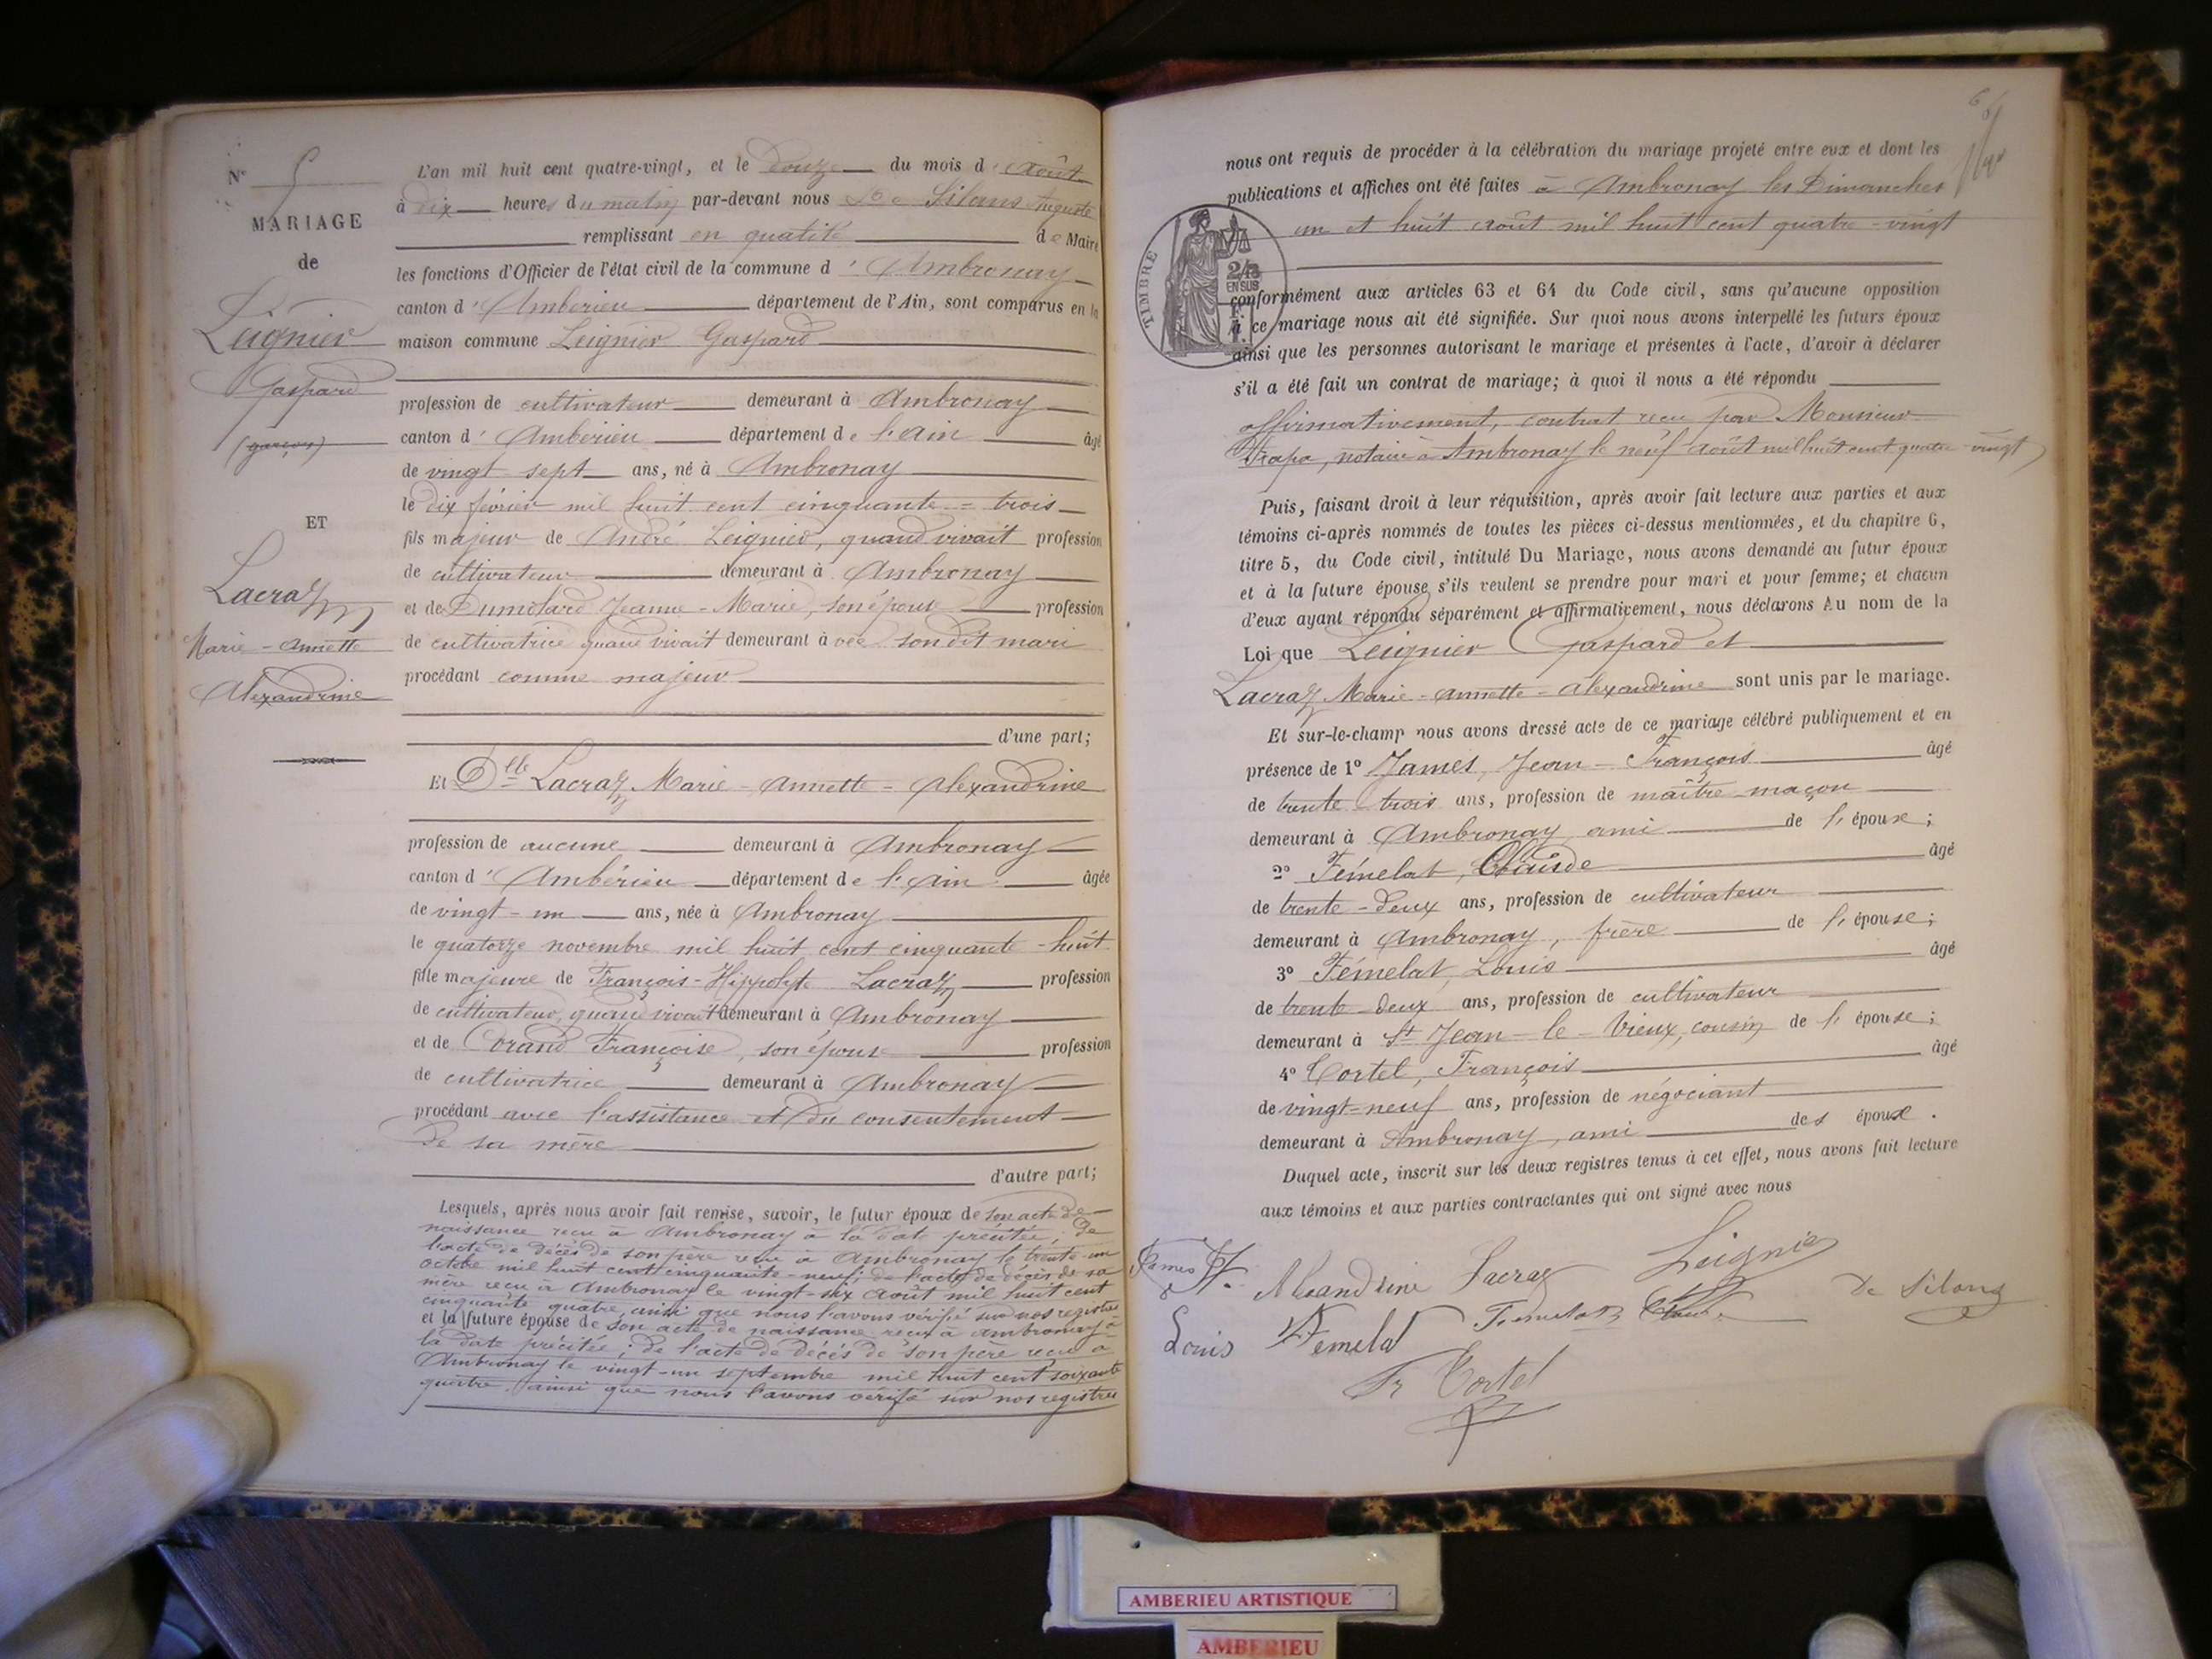 N° 5
MARIAGE
de
Leignier
Gaspard
(garçon)
ET
Lacraz
Marie-Annette
Alexandrine
L'an mil huit cent quatre-vingt, et le douze du mois d'Août
à dix heures du matin par-devant nous De Silans Auguste
remplissant en qualité de Maire
les fonctions d'Officier de l'état civil de la commune d'Ambronay
canton d'Ambérieu département de l'Ain, sont comparus en la
maison commune Leignier Gaspard
profession de cultivateur demeurant à Ambronay
canton d'Ambérieu département de l'Ain âgé
de vingt-sept ans, né à Ambronay
le dix février mil huit cent cinquante=trois
fils majeur de André Leignier, quand vivait profession
de cultivateur demeurant à Ambronay
et de Dumolard Jeanne-Marie, son épouse profession
de cultivatrice quand vivait demeurant à vec son dit mari
procédant comme majeur
d'une part;
Et Dlle Lacraz Marie-Annette=Alexandrine
profession de aucune demeurant à Ambronay
canton d'Ambérieu département de l'Ain âgée
de vingt-un ans, née à Ambronay
le quatorze novembre mil huit cent cinquante-huit
fille majeure de François-Hippolyte Lacraz profession
de cultivateur, quand vivait demeurant à Ambronay
et de Corand Françoise, son épouse profession
de cultivatrice demeurant à Ambronay
procédant avec l'assistance et du consentement
de sa mère
d'autre part;
Lesquels, après nous avoir fait remise, savoir, le futur époux de son acte de
naissance reçu à Ambronay à la date précitée; de
l'acte de décès de son père reçu à Ambronay le trente-un
octobre mil huit cent cinquante-neuf; de l'acte de décès de sa
mère reçu à Ambronay le vingt-six août mil huit cent
cinquante quatre, ainsi que nous l'avons vérifié sur nos registres
et la future épouse de son acte de naissance reçu à Ambronay à
la date précitée; de l'acte de décès de son père reçu à
Ambronay le vingt-un septembre mil huit cent soixante
quatre, ainsi que nous l'avons vérifié sur nos registres
nous ont requis de procéder à la célébration du mariage projeté entre eux et dont les
publications et affiches ont été faites à Ambronay les Dimanches
un et huit août mil huit cent quatre-vingt
TIMBRE
2/10
EN SUS
conformément aux articles 63 et 64 du Code civil, sans qu'aucune opposition
à ce mariage nous ait été signifiée. Sur quoi nous avons interpellé les futurs époux
ainsi que les personnes autorisant le mariage et présentes à l'acte, d'avoir à déclarer
s'il a été fait un contrat de mariage; à quoi il nous a été répondu
affirmativement, contrat reçu par Monsieur
notaire à Ambronay le neuf août mil huit cent quatre-vingt
Puis, faisant droit à leur réquisition, après avoir fait lecture aux parties et aux
témoins ci-après nommés de toutes les pièces ci-dessus mentionnées, et du chapitre 6,
titre 5, du Code civil, intitulé Du Mariage, nous avons demandé au futur époux
et à la future épouse s'ils veulent se prendre pour mari et pour femme; et chacun
d'eux ayant répondu séparément et affirmativement, nous déclarons Au nom de la
Loi que Leignier Gaspard et
Lacraz Marie-Annette-Alexandrine sont unis par le mariage.
Et sur-le-champ nous avons dressé acte de ce mariage célébré publiquement et en
présence de 1° James, Jean-François âgé
de trente-trois ans, profession de maître maçon
demeurant à Ambronay ami de l'épouse;
2° Fémelat, Claude âgé
de trente-deux ans, profession de cultivateur
demeurant à Ambronay, frère de l'épouse;
3° Fémelat, Louis âgé
de trente deux ans, profession de cultivateur
demeurant à St Jean-le-Vieux, cousin de l'épouse;
4° Tortel, François âgé
de vingt=neuf ans, profession de négociant
demeurant à Ambronay, ami des époux.
Duquel acte, inscrit sur les deux registres tenus à cet effet, nous avons fait lecture
aux témoins et aux parties contractantes qui ont signé avec nous
James
Alexandrine Lacraz
Leignier
de Silans
Louis Femelat
Femelat Claude
Fr Tortel
AMBERIEU ARTISTIQUE
AMBERIEU